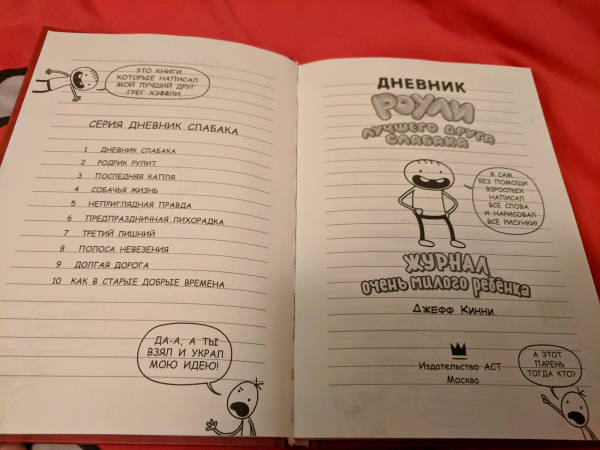 ЭТО КНИГИ,
КОТОРЫЕ НАПИСАЛ
МОЙ ЛУЧШИЙ ДРУГ
ГРЕГ ХЭФФЛИ.
СЕРИЯ ДНЕВНИК СЛАБАКА
1 ДНЕВНИК СЛАБАКА
2 РОДРИК РУЛИТ
3 ПОСЛЕДНЯЯ КАПЛЯ
4 СОБАЧЬЯ ЖИЗНЬ
5 НЕПРИГЛЯДНАЯ ПРАВДА
6 ПРЕДПРАЗДНИЧНАЯ ЛИХОРАДКА
7 ТРЕТИЙ ЛИШНИЙ
8 ПОЛОСА НЕВЕЗЕНИЯ
9 ДОЛГАЯ ДОРОГА
10 КАК В СТАРЫЕ ДОБРЫЕ ВРЕМЕНА
ДА-А, А ТЫ
ВЗЯЛ И УКРАЛ
МОЮ ИДЕЮ!
ДНЕВНИК
РОУЛИ
ЛУЧШЕГО ДРУГА
СЛАБАКА
Я САМ
БЕЗ ПОМОЩИ
ВЗРОСЛЫХ
НАПИСАЛ
ВСЕ СЛОВА
И НАРИСОВАЛ
ВСЕ РИСУНКИ!
ЖУРНАЛ
ОЧЕНЬ МИЛОГО РЕБЁНКА
ДЖЕФФ КИННИ
Издательство АСТ
Москва
А ЭТОТ
ПАРЕНЬ
ТОГДА КТО?